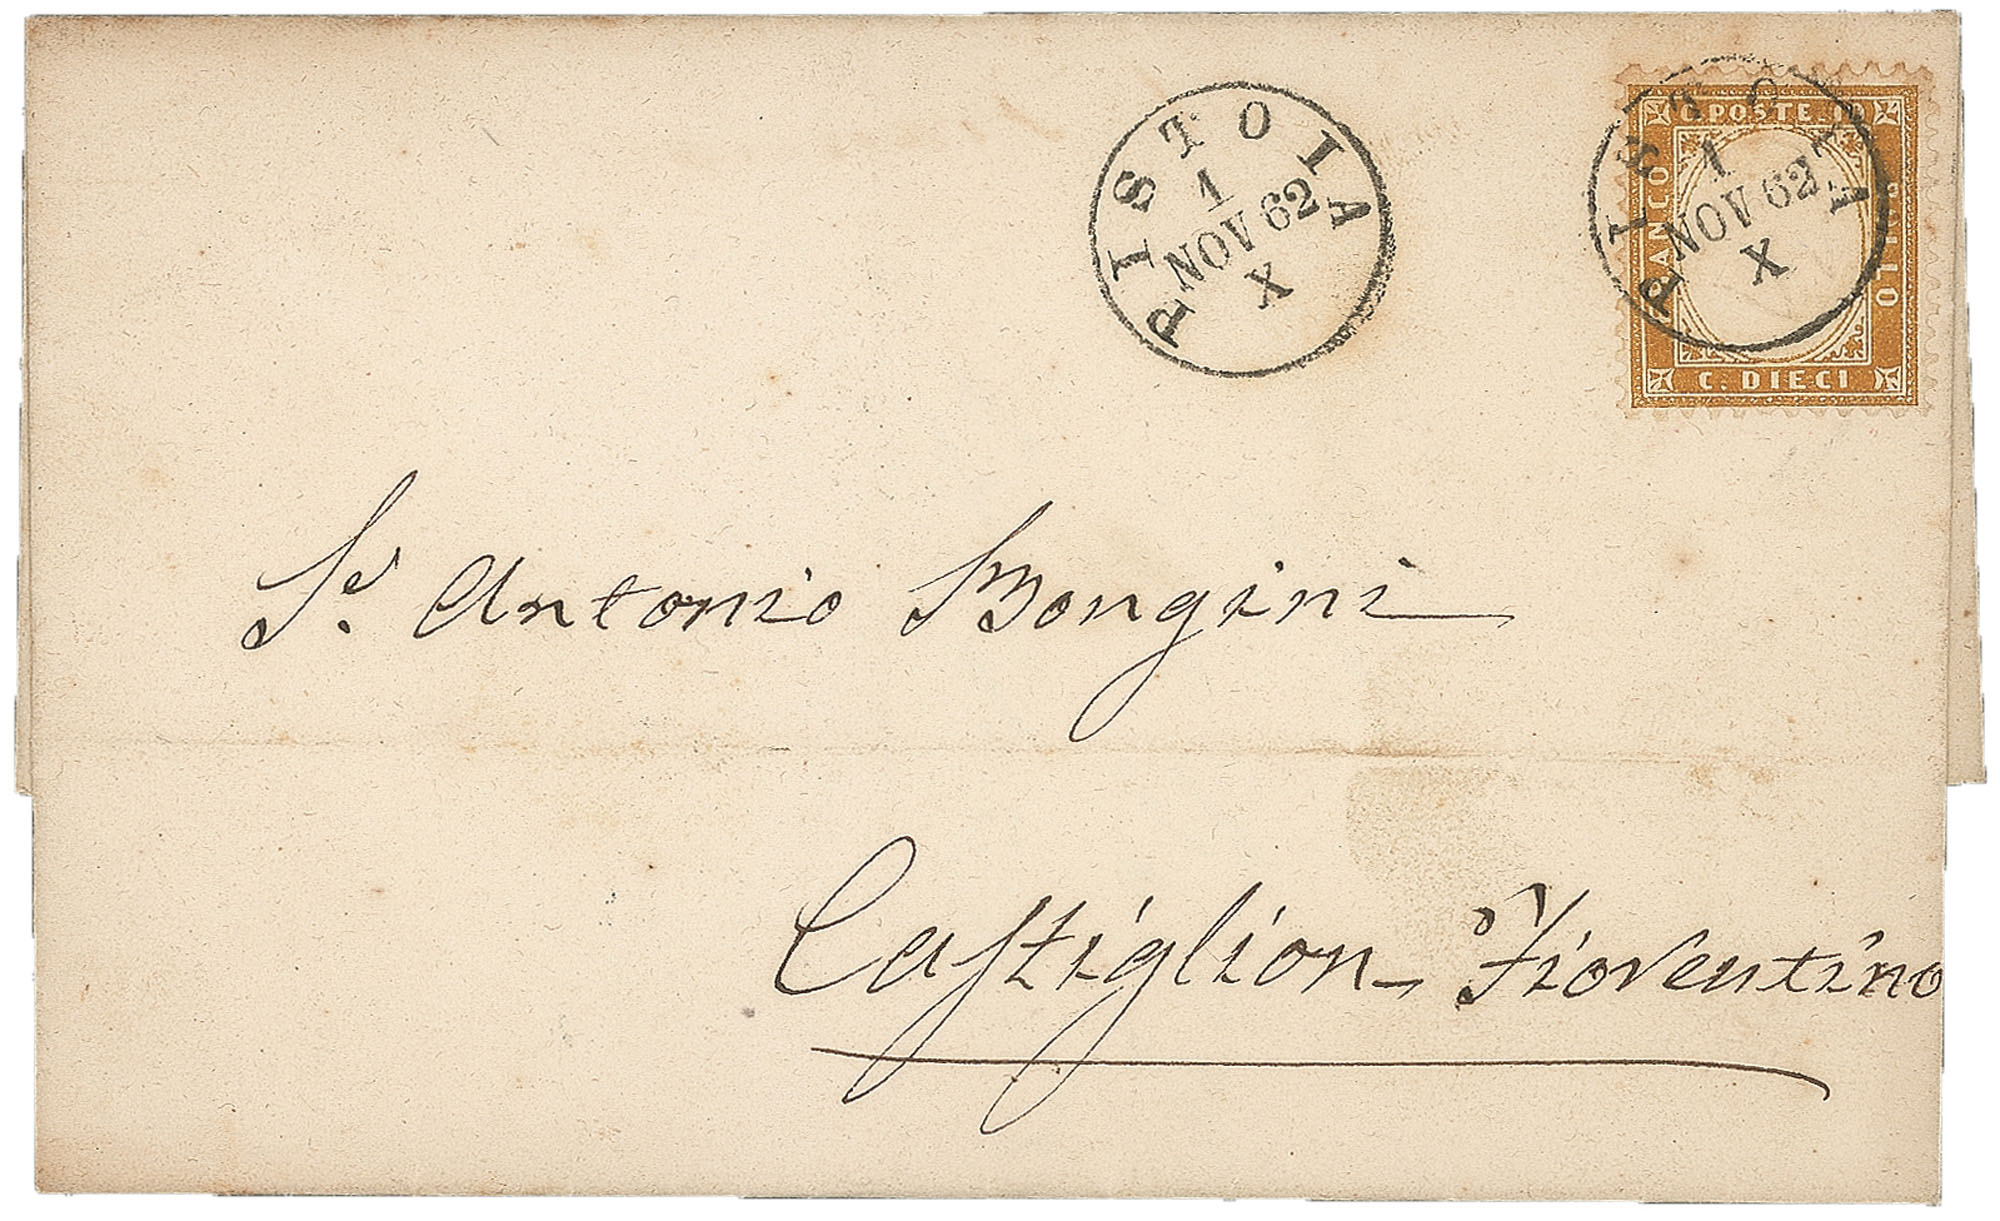 PISTOIA
1
NOV 62
X
PISTOIA
1
NOV 62
X
C. POSTE. 10
FRANCO
BOLLO
C. DIECI
Sr. Antonio Bongini
Castiglion-Fiorentino